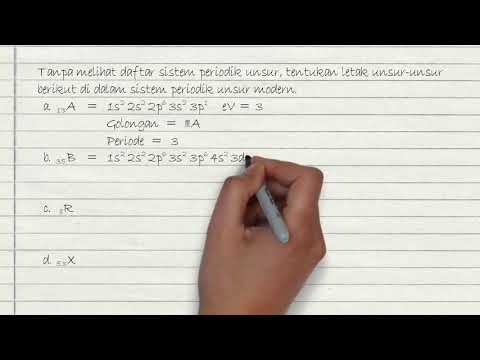 Tanpa melihat daftar sistem periodik unsur, tentukan letak unsur-unsur
berikut di dalam sistem periodik unsur modern.
a. ₁₃A = 1s² 2s² 2p⁶ 3s² 3p¹ eV = 3
Golongan = IIIA
Periode = 3
b. ₃₅B = 1s² 2s² 2p⁶ 3s² 3p⁶ 4s² 3d
c. ₈R
d. X